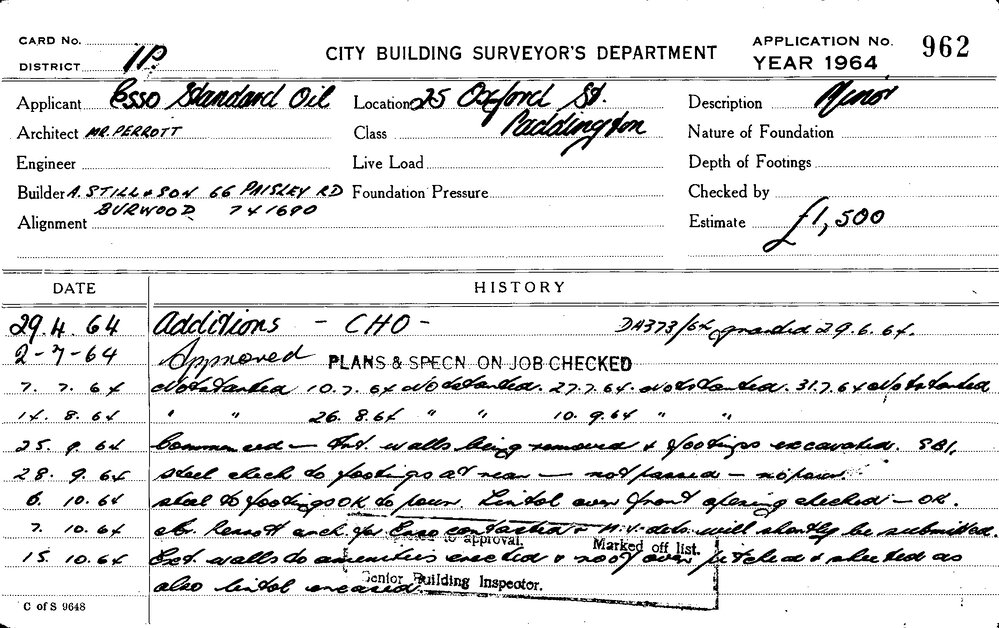 CARD No.
DISTRICT 1P.
CITY BUILDING SURVEYOR'S DEPARTMENT
APPLICATION No. 962
YEAR 1964
Applicant Esso Standard Oil Location 25 Oxford St. Description Minor
Architect MR. PERROTT Class Paddington Nature of Foundation
Engineer Live Load Depth of Footings
Builder A. STILL & SON 66 PAISLEY RD Foundation Pressure Checked by
BURWOOD 741690
Alignment Estimate £1,500
DATE HISTORY
29.4.64 Additions - CHO - DA373/64 granted 29.6.64.
2-7-64 Approved PLANS & SPECN. ON JOB CHECKED
7.7.64 Not started 10.7.64 Not started. 27.7.64. Not started. 31.7.64 Not started
14.8.64 " " 26.8.64 " " 10.9.64 " "
25.9.64 Commenced — Int. walls being removed & footings excavated. SBI.
28.9.64 Steel check to footings at rear — not passed — no pour.
6.10.64 Steel to footings OK to pour. Lintol over front opening checked — OK.
7.10.64 Mr. Perrott arch. for Esso contacted & M.V. dets. will shortly be submitted.
to approval. Marked off list.
15.10.64 Ext. walls to amenities erected & roof over pitched & sheeted as
also lintol encased.
Senior Building Inspector.
C of S 9648